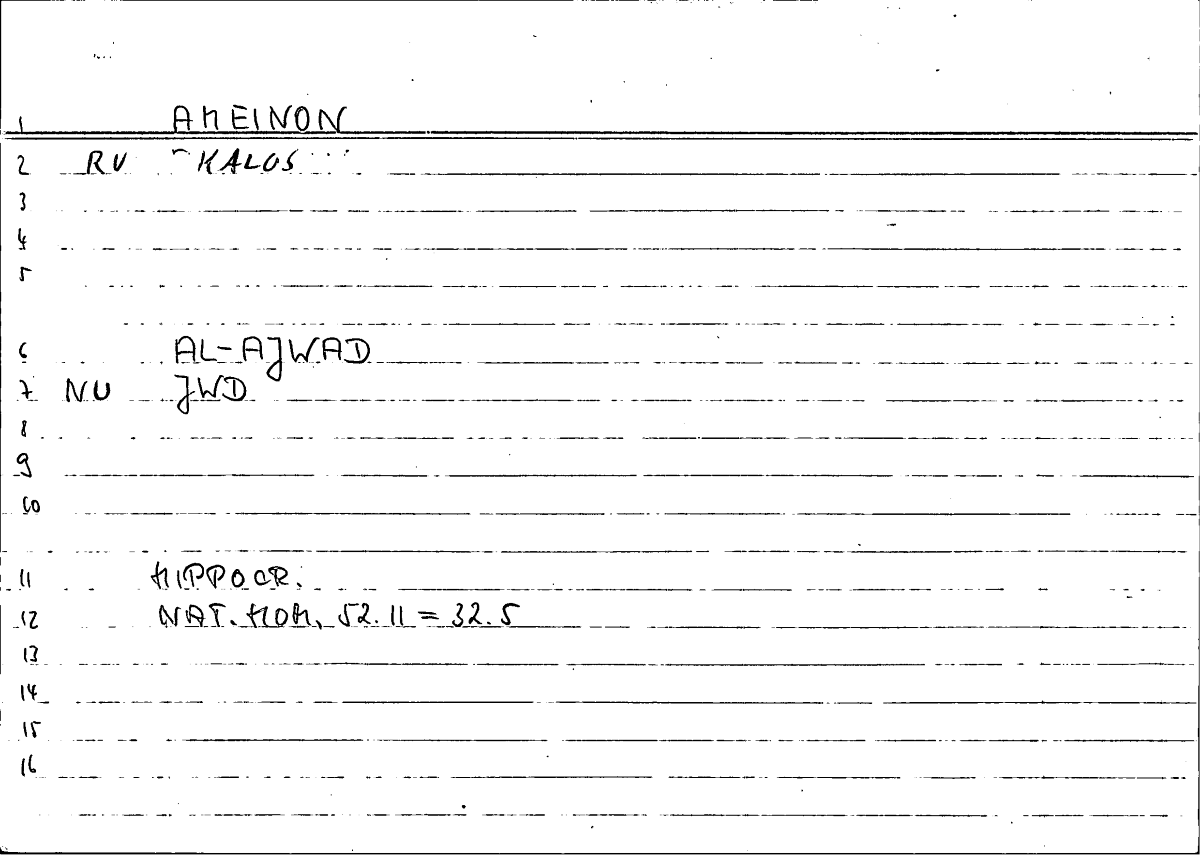 1 AMEINON
2 RU KALOS
3
4
5
6 AL-AJWAD
7 NU JWD
8
9
10
11 HIPPOCR.
12 NAT. HOM. 52.11 = 32.5
13
14
15
16